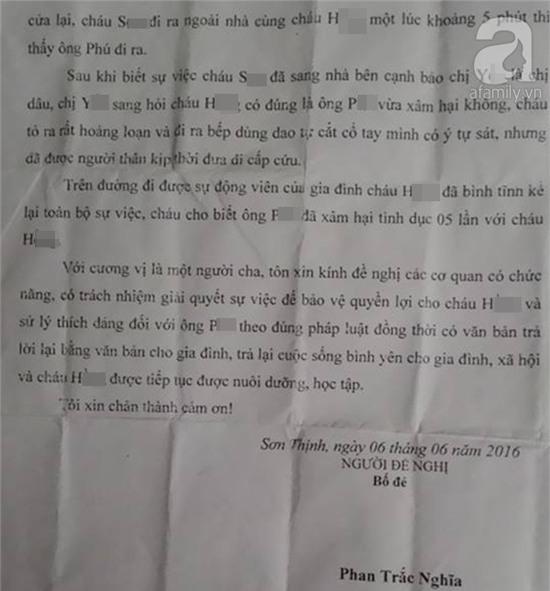 cửa lại, cháu S đi ra ngoài nhà cùng cháu H một lúc khoảng 5 phút thì
thấy ông Phú đi ra.
Sau khi biết sự việc cháu S đã sang nhà bên cạnh bảo chị Y là chị
dâu, chị Y sang hỏi cháu H có đúng là ông P vừa xâm hại không, cháu
tỏ ra rất hoảng loạn và đi ra bếp dùng dao tự cắt cổ tay mình có ý tự sát, nhưng
đã được người thân kịp thời đưa đi cấp cứu.
Trên đường đi được sự động viên của gia đình cháu H đã bình tĩnh kể
lại toàn bộ sự việc, cháu cho biết ông P đã xâm hại tình dục 05 lần với cháu
H
Với cương vị là một người cha, tôn xin kính đề nghị các cơ quan có chức
năng, có trách nhiệm giải quyết sự việc để bảo vệ quyền lợi cho cháu H và
sử lý thích đáng đối với ông P theo đúng pháp luật đồng thời có văn bản trả
lời lại bằng văn bản cho gia đình, trả lại cuộc sống bình yên cho gia đình, xã hội
và cháu H được tiếp tục được nuôi dưỡng, học tập.
Tôi xin chân thành cảm ơn!
Sơn Thịnh, ngày 06 tháng 06 năm 2016
NGƯỜI ĐỀ NGHỊ
Bố đẻ
Phan Trắc Nghĩa
a
afamily.vn